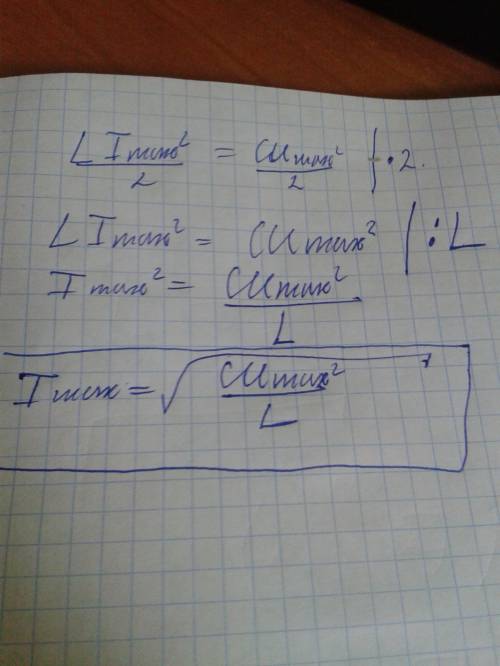 L Imax² / 2 = CUmax² / 2 | · 2.
L Imax² = CUmax² | : L
Imax² = CUmax² / L
Imax = √(CUmax² / L)